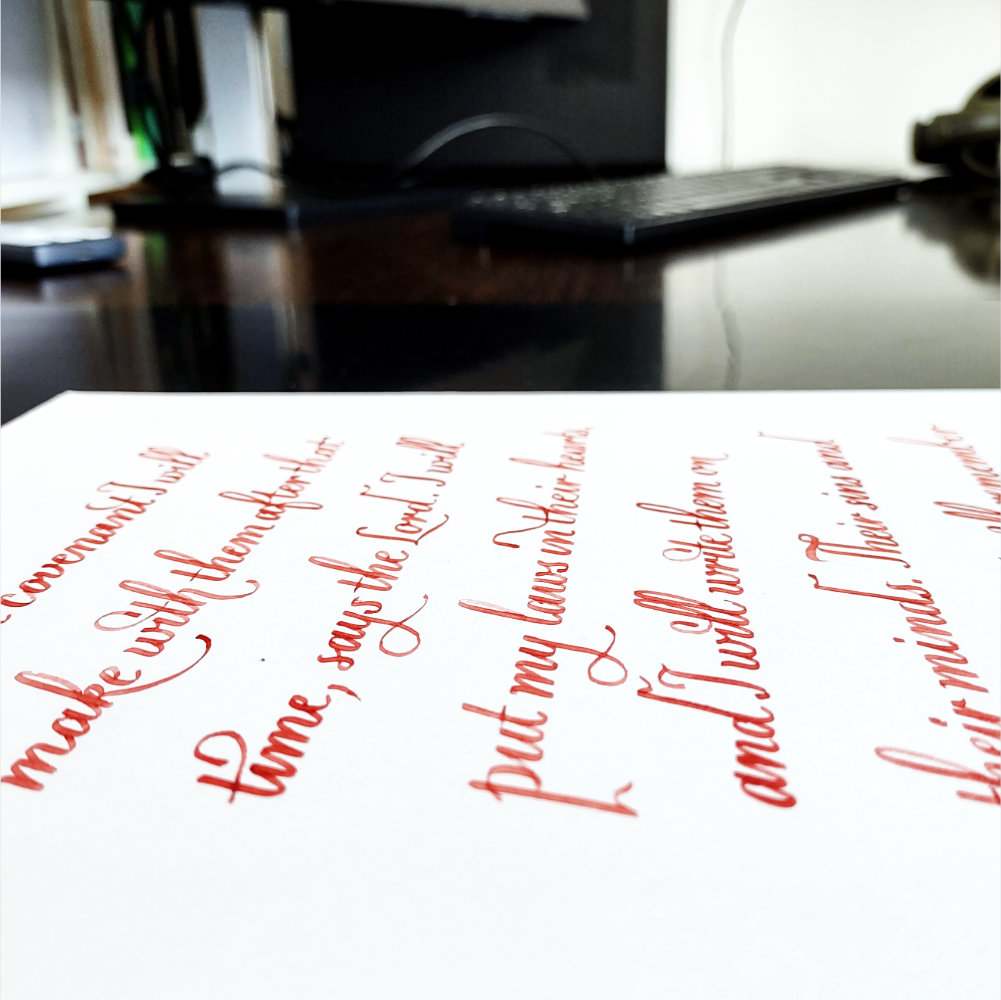 covenant I will
make with them after that
time, says the Lord. I will
put my laws in their hearts,
and I will write them on
their minds. Their sins and